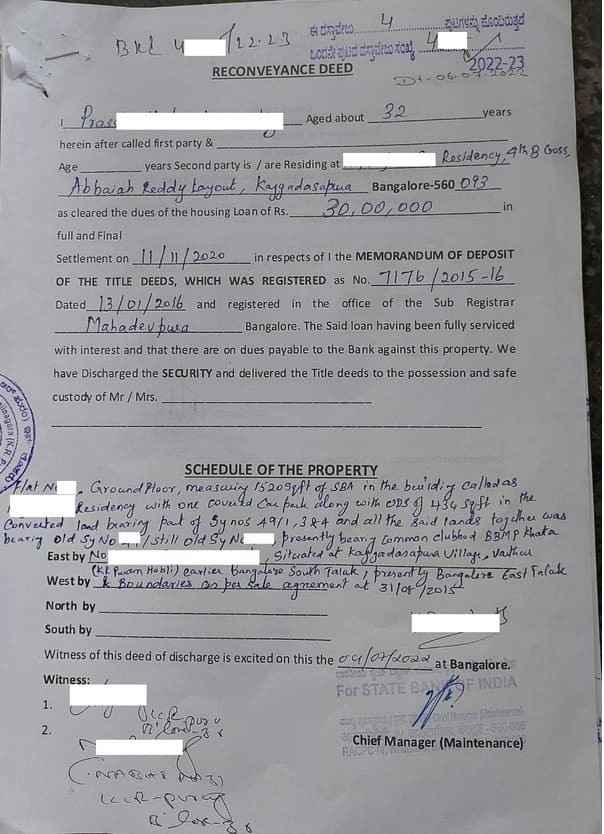 BKL 4 /22-23
ಈ ದಸ್ತಾವೇಜು 4 ಪುಟಗಳನ್ನು ಹೊಂದಿರುತ್ತದೆ
ಒಂದನೇ ಪುಟದ ದಸ್ತಾವೇಜು ಸಂಖ್ಯೆ 4
2022-23
RECONVEYANCE DEED
I Pras Aged about 32 years
herein after called first party &
Age years Second party is / are Residing at Residency, 4th B Cross,
Abbaiah Reddy Layout, Kaggadasapura Bangalore-560 093
as cleared the dues of the housing Loan of Rs. 30,00,000 in
full and Final
Settlement on 11/11/2020 in respects of I the MEMORANDUM OF DEPOSIT
OF THE TITLE DEEDS, WHICH WAS REGISTERED as No. 7176/2015-16
Dated 13/01/2016 and registered in the office of the Sub Registrar
Mahadevpura Bangalore. The Said loan having been fully serviced
with interest and that there are on dues payable to the Bank against this property. We
have Discharged the SECURITY and delivered the Title deeds to the possession and safe
custody of Mr / Mrs.
SCHEDULE OF THE PROPERTY
Flat No , Ground Floor, measuring 1520 sqft of SBA in the building called as
Residency with one covered Car park along with UDS of 434 Sqft in the
Converted land bearing part of Sy nos 49/1, 3&4 and all the said lands together was
bearing Old Sy No /still old Sy No , presently bearing Common clubbed BBMP Khata
East by No , Situated at Kaggadasapura Village, Varthur
(KR Puram Hobli) earlier Bangalore South Taluk, presently Bangalore East Taluk
West by & Boundaries as per sale agreement at 31/08/2015
North by
South by
Witness of this deed of discharge is excited on this the 04/07/2022 at Bangalore.
Witness:
For STATE BANK OF INDIA
1.
2.
Chief Manager (Maintenance)